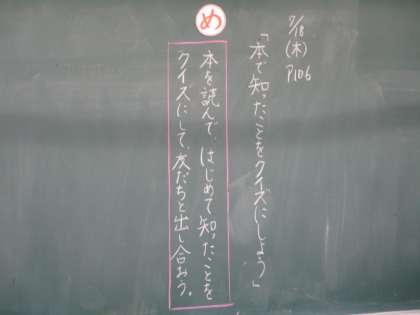 7/18
(木)
P106
「本で知ったことをクイズにしよう」
め
本を読んで、はじめて知ったことを
クイズにして、友だちと出し合おう。